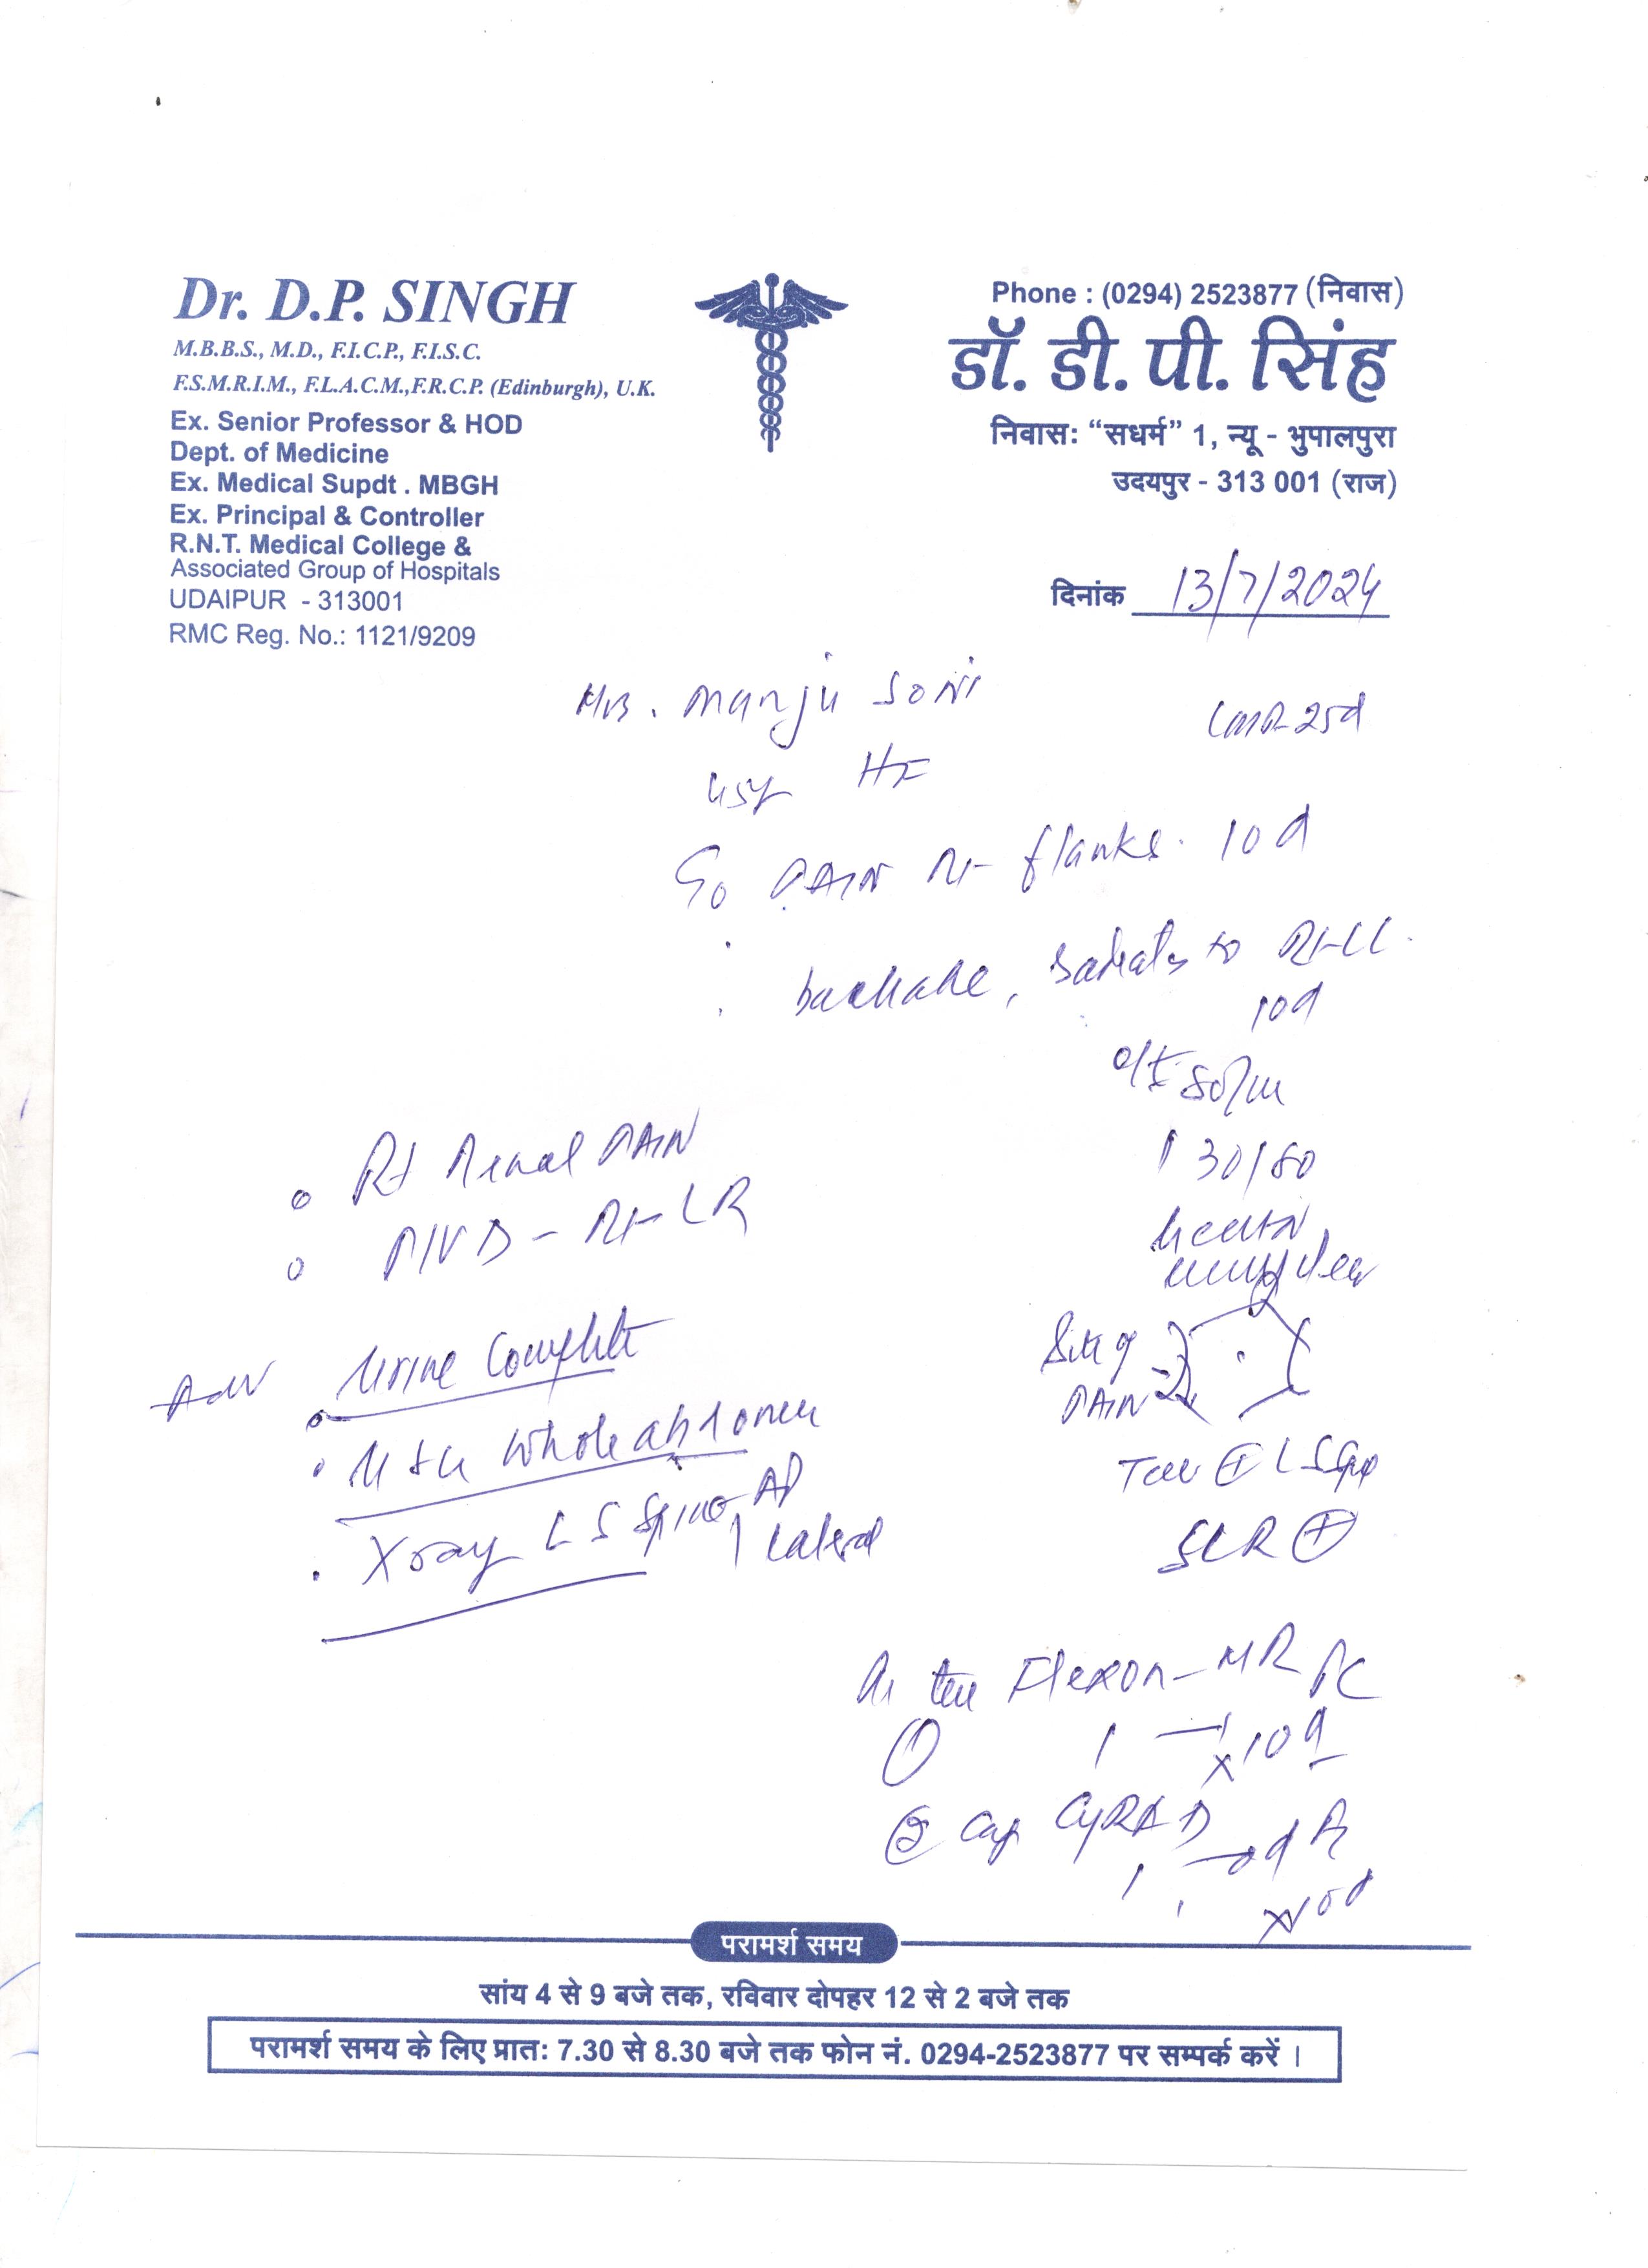 Dr. D.P. SINGH
M.B.B.S., M.D., F.I.C.P., F.I.S.C.
F.S.M.R.I.M., F.L.A.C.M.,F.R.C.P. (Edinburgh), U.K.
Ex. Senior Professor & HOD
Dept. of Medicine
Ex. Medical Supdt . MBGH
Ex. Principal & Controller
R.N.T. Medical College &
Associated Group of Hospitals
UDAIPUR - 313001
RMC Reg. No.: 1121/9209
Phone : (0294) 2523877 (निवास)
डॉ. डी. पी. सिंह
निवास: “सधर्म” 1, न्यू - भुपालपुरा
उदयपुर - 313 001 (राज)
दिनांक 13/7/2024
Mrs. Manju Soni
45y HF
C/o PAIN Rt flanks. 10d
backache, radiates to Rt LL
10d
O/E 80/m
130/80
Site of
PAIN
LS Spine
SLR +
Rt Renal PAIN
PIVD - Rt LR
Adv Urine Complete
USG Whole abdomen
X ray LS Spine AP
Lateral
Flexon-MR PC
① 1 x10d
② Cap CyRA D
1 x10d
परामर्श समय
सांय 4 से 9 बजे तक, रविवार दोपहर 12 से 2 बजे तक
परामर्श समय के लिए प्रात: 7.30 से 8.30 बजे तक फोन नं. 0294-2523877 पर सम्पर्क करें ।